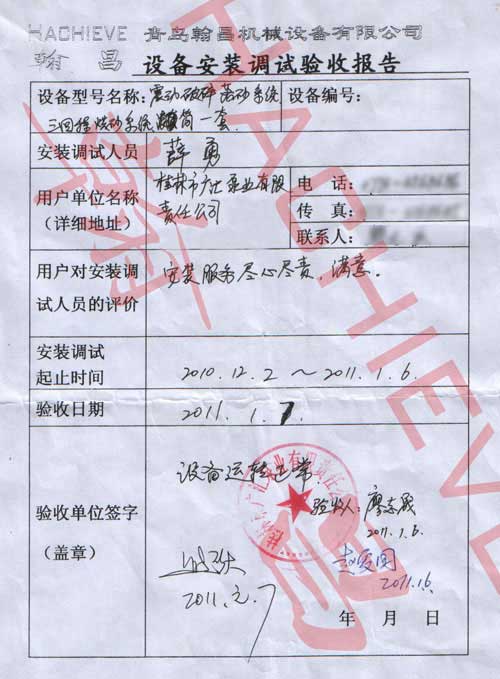 HACHIEVE 青岛翰昌机械设备有限公司
翰昌 设备安装调试验收报告
设备型号名称：震动破碎落砂系统 设备编号：
三回程烧砂系统 滚筒一套
安装调试人员 薛勇
用户单位名称（详细地址） 桂林市广仕泵业有限责任公司
电 话：
传 真：
联系人：
用户对安装调试人员的评价 安装服务尽心尽责，满意。
安装调试起止时间 2010.12.2 ～ 2011.1.6
验收日期 2011.1.7
验收单位签字（盖章）
设备运转正常.
验收人：廖志成
2011.1.6.
2011.1.6
2011.2.7
年 月 日
HACHIEVE
翰昌